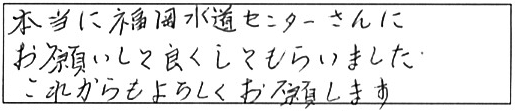 本当に福岡水道センターさんに
お願いして良くしてもらいました.
これからもよろしくお願します